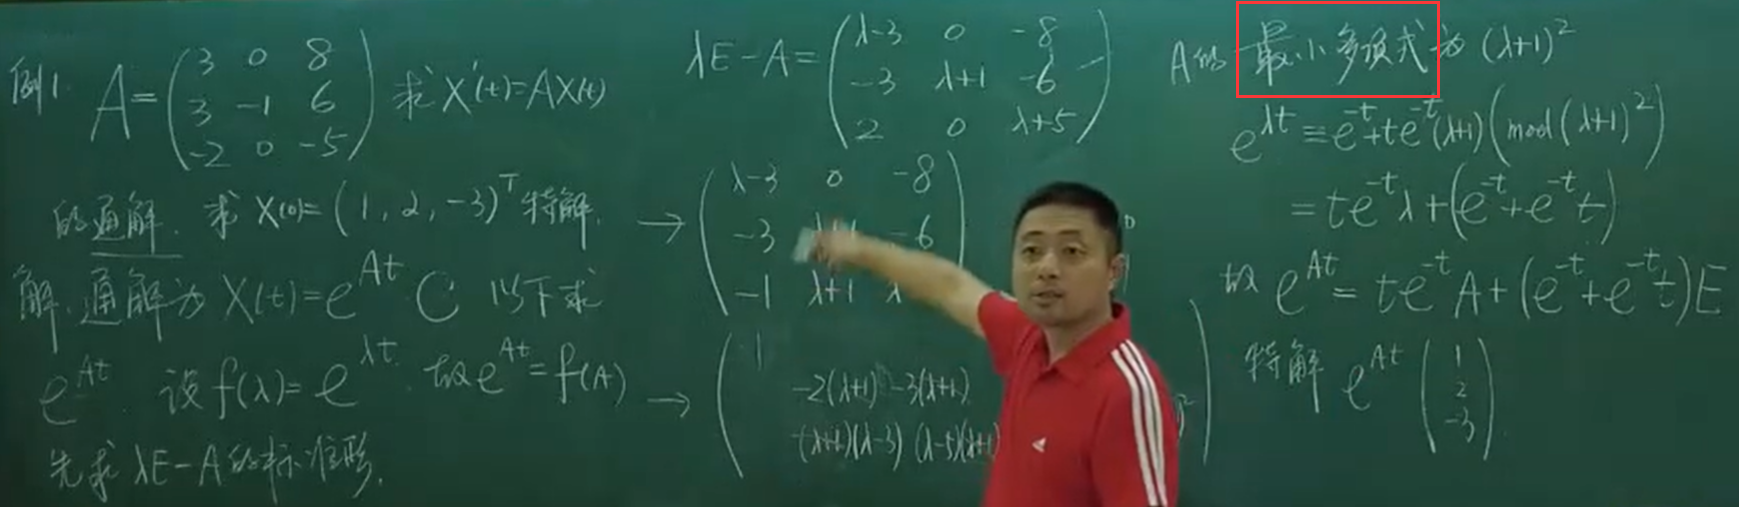 例1. A=(3 0 8
3 -1 6
-2 0 -5) 求X'(t)=AX(t)
的通解. 求X(0)=(1, 2, -3)^T特解.
解. 通解为X(t)=e^{At}C 以下求
e^{At}. 设f(λ)=e^{λt}. 故e^{At}=f(A)
先求λE-A的标准形.
λE-A=(λ-3 0 -8
-3 λ+1 -6
2 0 λ+5)
→(λ-3 0 -8
-3 λ+1 -6
-1 λ+1 λ
→(1
-2(λ+1) -3(λ+1)
-(λ+1)(λ-3) (λ-5)(λ+1)
A的最小多项式为(λ+1)^2
e^{λt}≡e^{-t}+te^{-t}(λ+1)(mod(λ+1)^2)
=te^{-t}λ+(e^{-t}+e^{-t}t)
故e^{At}=te^{-t}A+(e^{-t}+e^{-t}t)E
特解 e^{At}(1
2
-3)